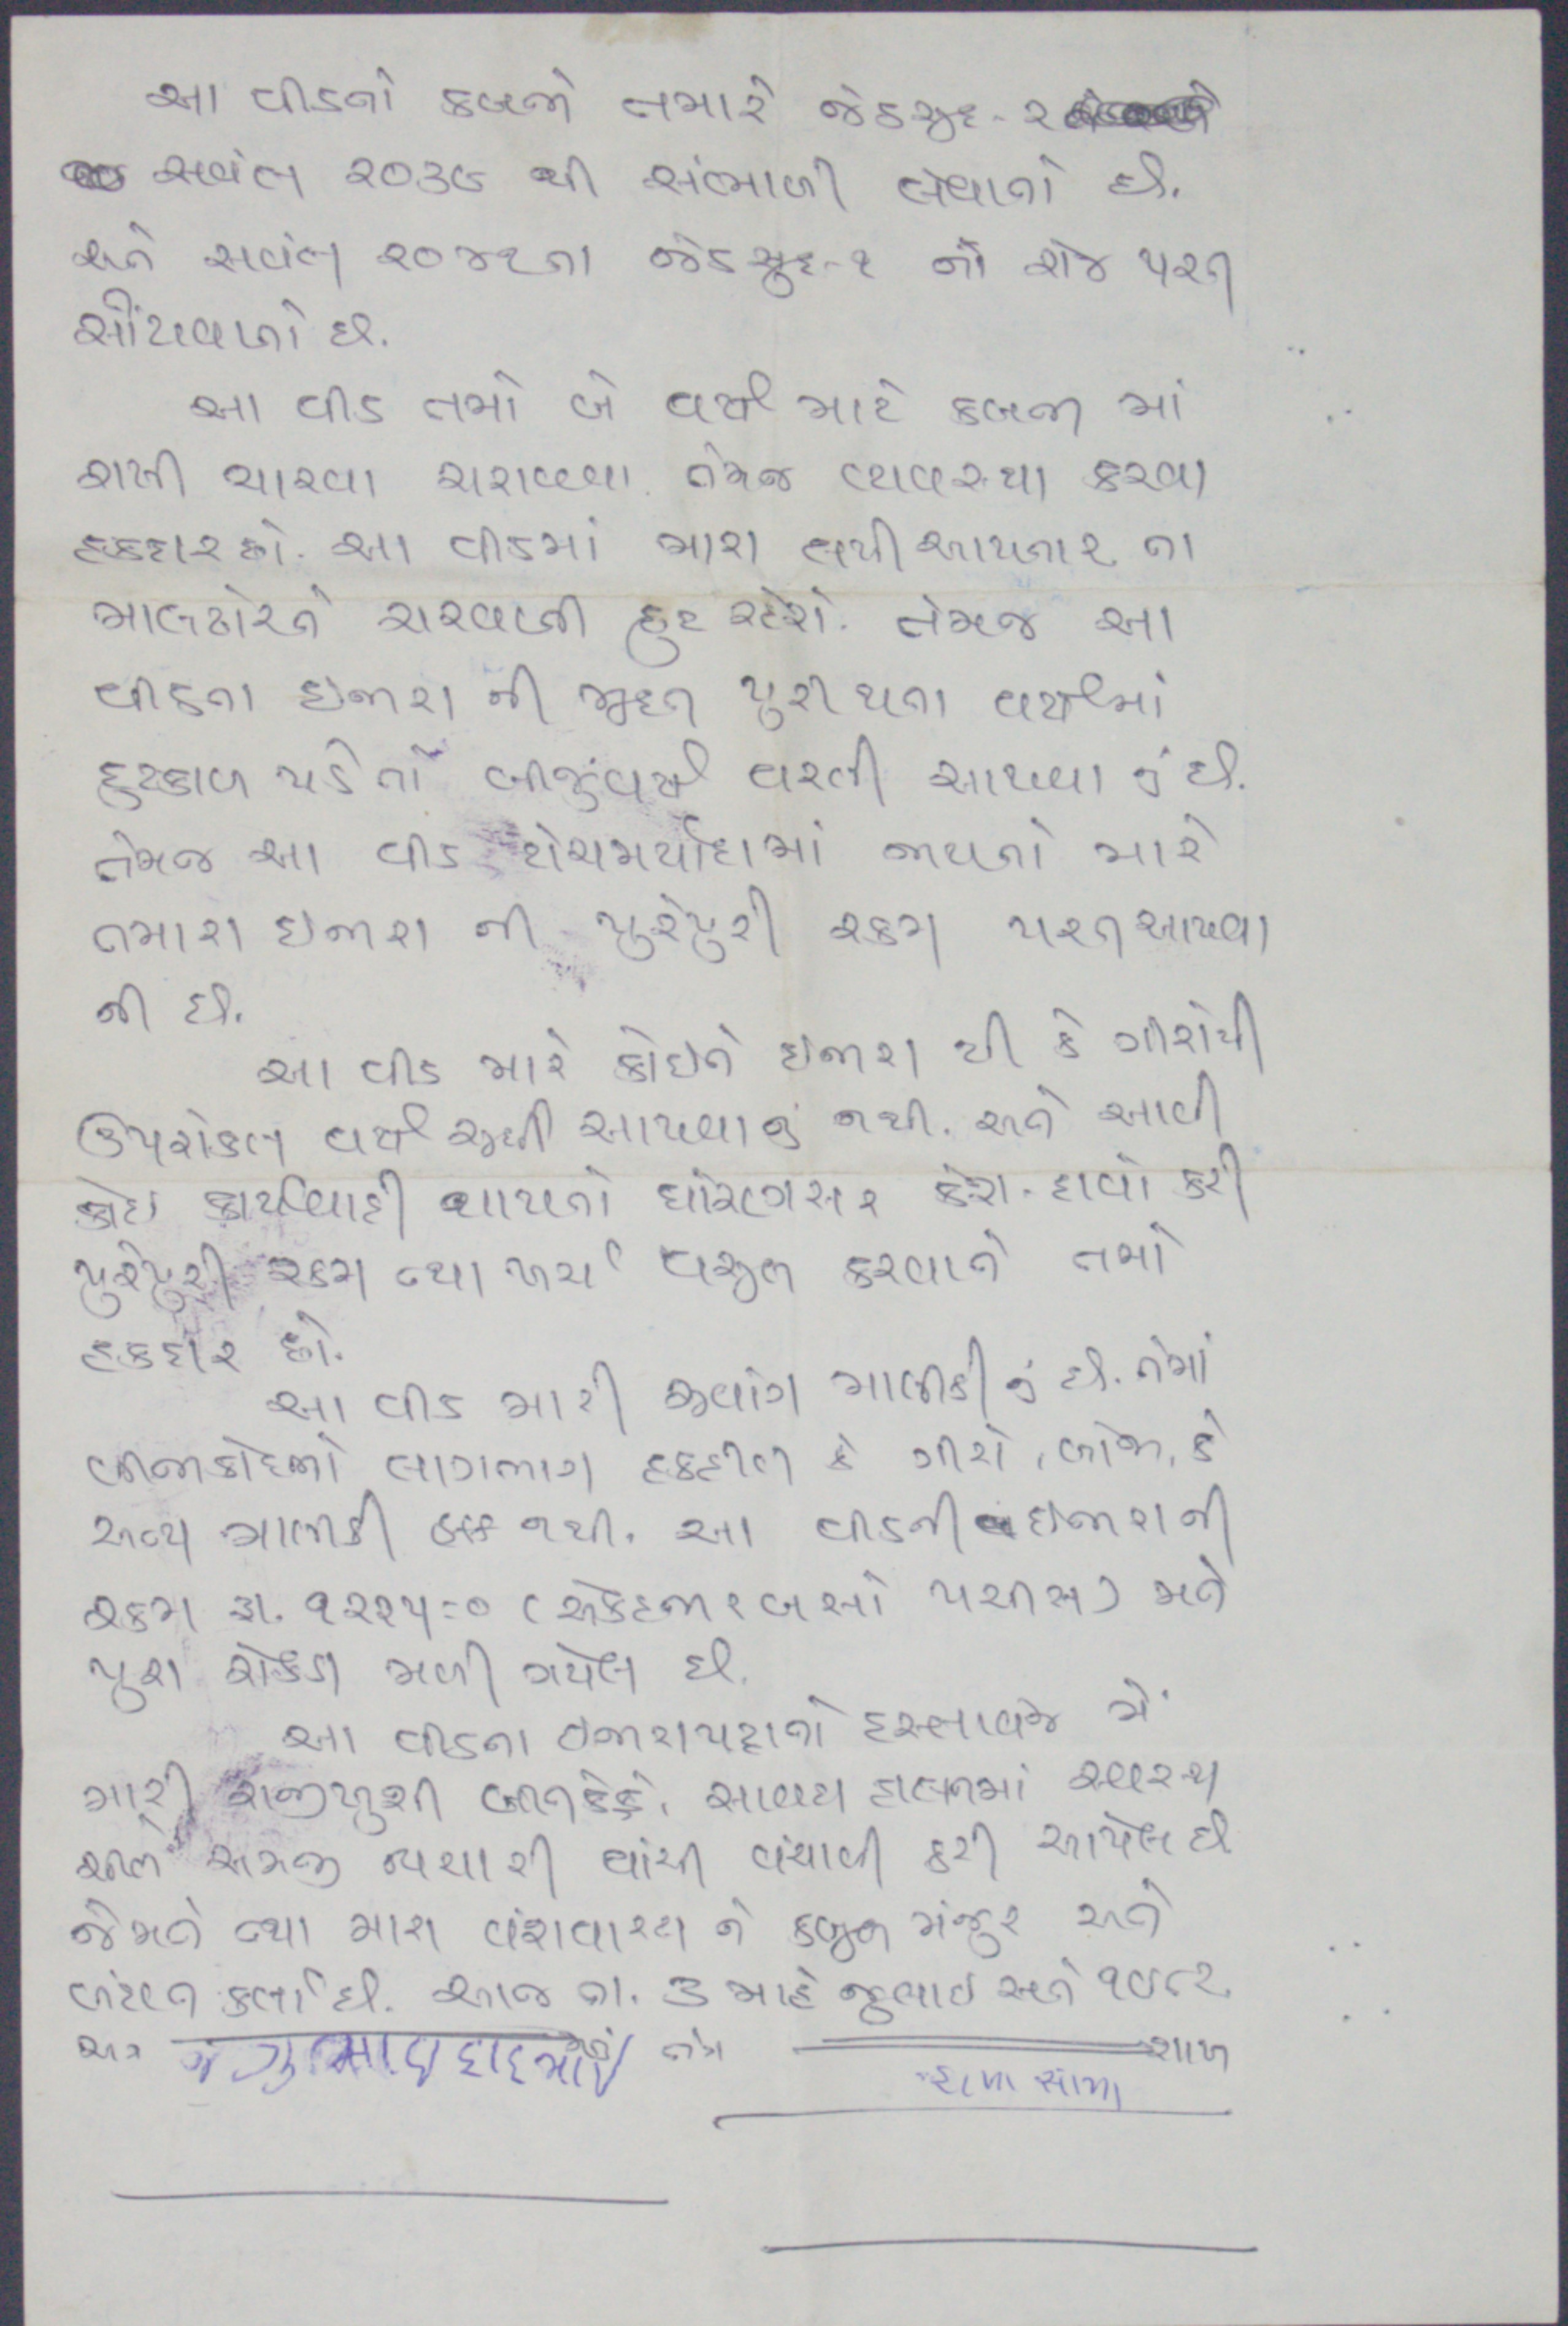 આ વીડનો કબજો તમારે જેઠસુદ-૨
સવંત ૨૦૩૯ થી સંભાળી લેવાનો છે.
અને સવંત ૨૦૪૧ના જેઠસુદ-૧ નો રોજ પરત
સોંપવાનો છે.
આ વીડ તમો બે વર્ષ માટે કબજા માં
રાખી ચારવા ચરાવવા તેમજ વ્યવસ્થા કરવા
હકદાર છો. આ વીડમાં મારા લખી આપનાર ના
માલઢોરને ચરવાની છુટ રહેશે. તેમજ આ
વીડના ઇજારા ની મુદત પુરી થતા વર્ષમાં
દુષ્કાળ પડે તો બીજુંવર્ષ વરતી આપવા નું છે.
તેમજ આ વીડ ટોચમર્યાદામાં જાયતો મારે
તમારા ઇજારા ની પુરેપુરી રકમ પરત આપવા
ની છે.
આ વીડ મારે કોઇને ઇજારા થી કે ગીરોથી
ઉપરોકત વર્ષ સુધી આપવાનું નથી. અને આવી
કોઇ કાર્યવાહી થાયતો ધોરણસર કેશ-દાવો કરી
પુરેપુરી રકમ તથા ખર્ચ વસુલ કરવાને તમો
હકદાર છો.
આ વીડ મારી સુવાંગ માલીકી નું છે. તેમાં
બીજાકોઇનો લાગભાગ હકહીત કે ગીરો, બોજા, કે
અન્ય માલીકી હક્ક નથી. આ વીડની ઇજારાની
રકમ રૂા. ૧૨૨૫=૦ (એકહજાર બસો પચીસ) મને
પુરા રોકડા મળી ગયેલ છે.
આ વીડના ઇજારાપટ્ટાનો દસ્તાવેજ મેં
મારી રાજીખુશી બીનકેફે, સાવધ હાલતમાં સ્વસ્થ
અને સમજી વિચારી વાંચી વંચાવી કરી આપેલ છે
જેમને તથા મારા વંશવારસ ને કબુલ મંજુર અને
બંધન કર્તા છે. આજ તા. ૩ માહે જુલાઇ સને ૧૯૮૨
અત્ર મતું તત્ર શાખ